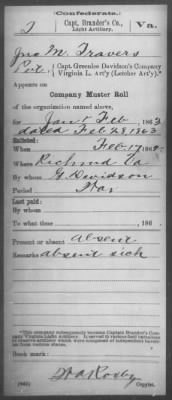 (Confederate.)
T Capt. Brander's Co., Va.
Light Artillery.
Jno M. Travers
Pvt Capt. Greenlee Davidson's Company
Virginia L. Art'y (Letcher Art'y).*
Appears on
Company Muster Roll
of the organization named above,
for Jan & Feb, 1863
dated Feb 28 1863
Enlisted:
When Feb 17, 186
Where Richmd Va
By whom G Davidson
Period War
Last paid:
By whom
To what time , 186 .
Present or absent absent
Remarks absent sick
*This company subsequently became Captain Brander's Company Virginia Light Artillery.
Book mark:
Copyist.